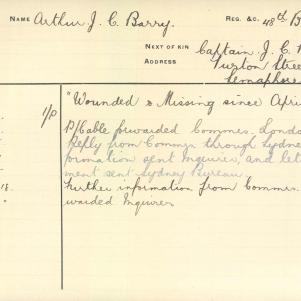 NAME Arthur J. C. Barry. REG. &C. 48th B
NEXT OF KIN Captain J. C.
ADDRESS Street
Semaphore
1/P "Wounded & Missing since Apri
P/Cable forwarded Commnrs. Londo
Reply from Commnr through Sydne
formation sent Inquirer, and let
ment sent Sydney Bureau.
18. Further information from Commnr
warded Inquirer